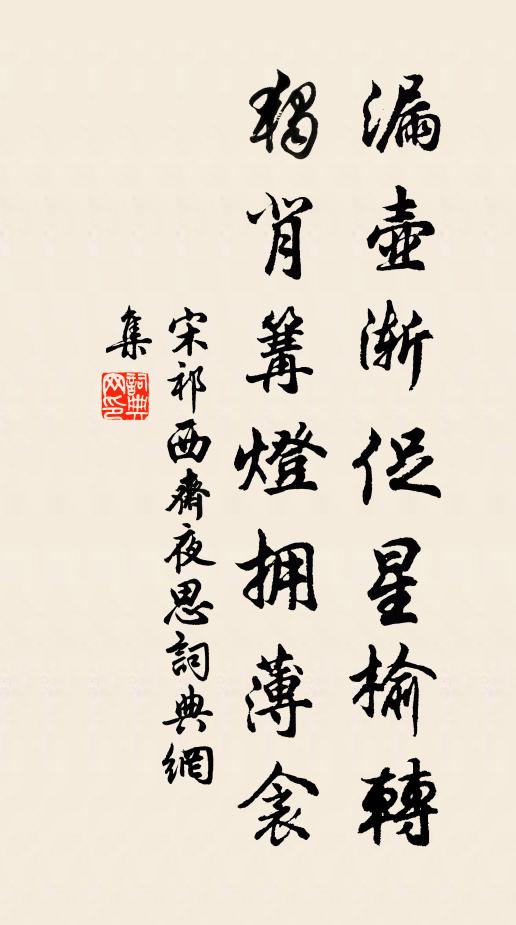 漏壺漸促星榆轉
獨背篝燈擁薄衾
宋祁西齋夜思詞典網
集
詞典网印